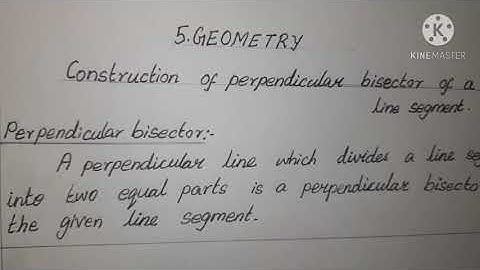 5.GEOMETRY
KINEMASTER
Construction of perpendicular bisector of a
line segment.
Perpendicular bisector:-
A perpendicular line which divides a line se
into two equal parts is a perpendicular bisecto
the given line segment.